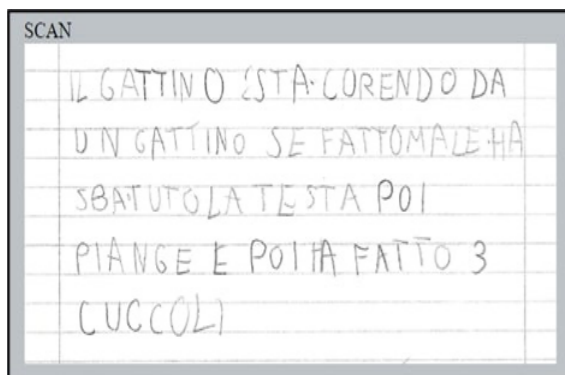 SCAN
IL GATTINO ISTA·CORENDO DA
UN GATTINO SE FATTOMALE·HA
SBA·TUTOLA TESTA POI
PIANGE E POI HA FATTO 3
CUCCOLI